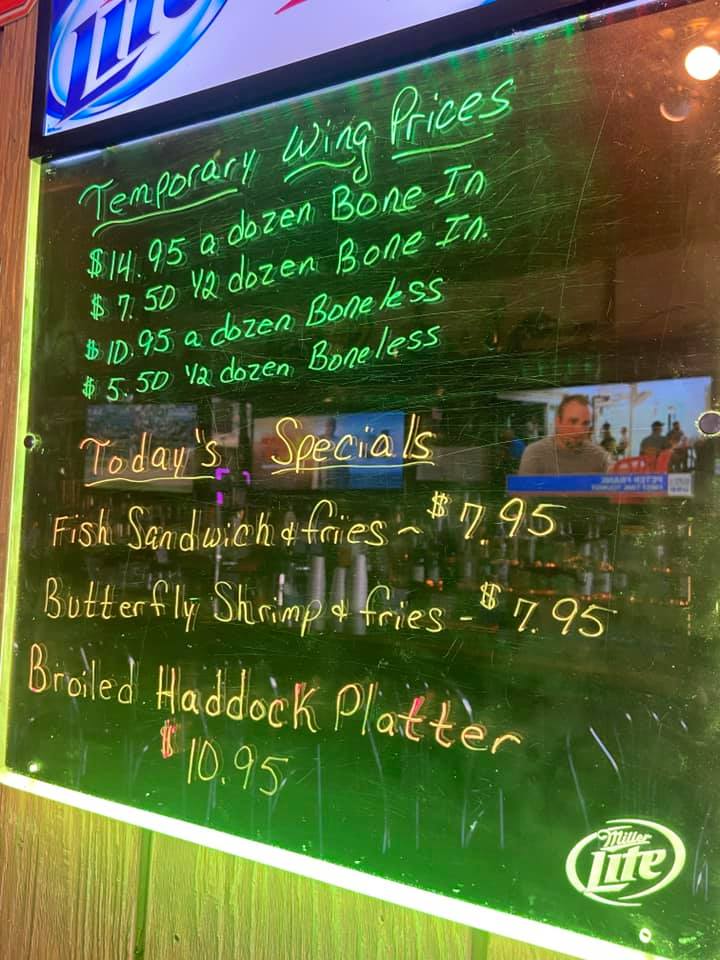 Lite
Temporary Wing Prices
$14.95 a dozen Bone In
$7.50 1/2 dozen Bone In.
$10.95 a dozen Boneless
$5.50 1/2 dozen Boneless
Today's Specials
Fish Sandwich & fries ~ $7.95
Butterfly Shrimp & fries - $7.95
Broiled Haddock Platter
$10.95
Miller
Lite